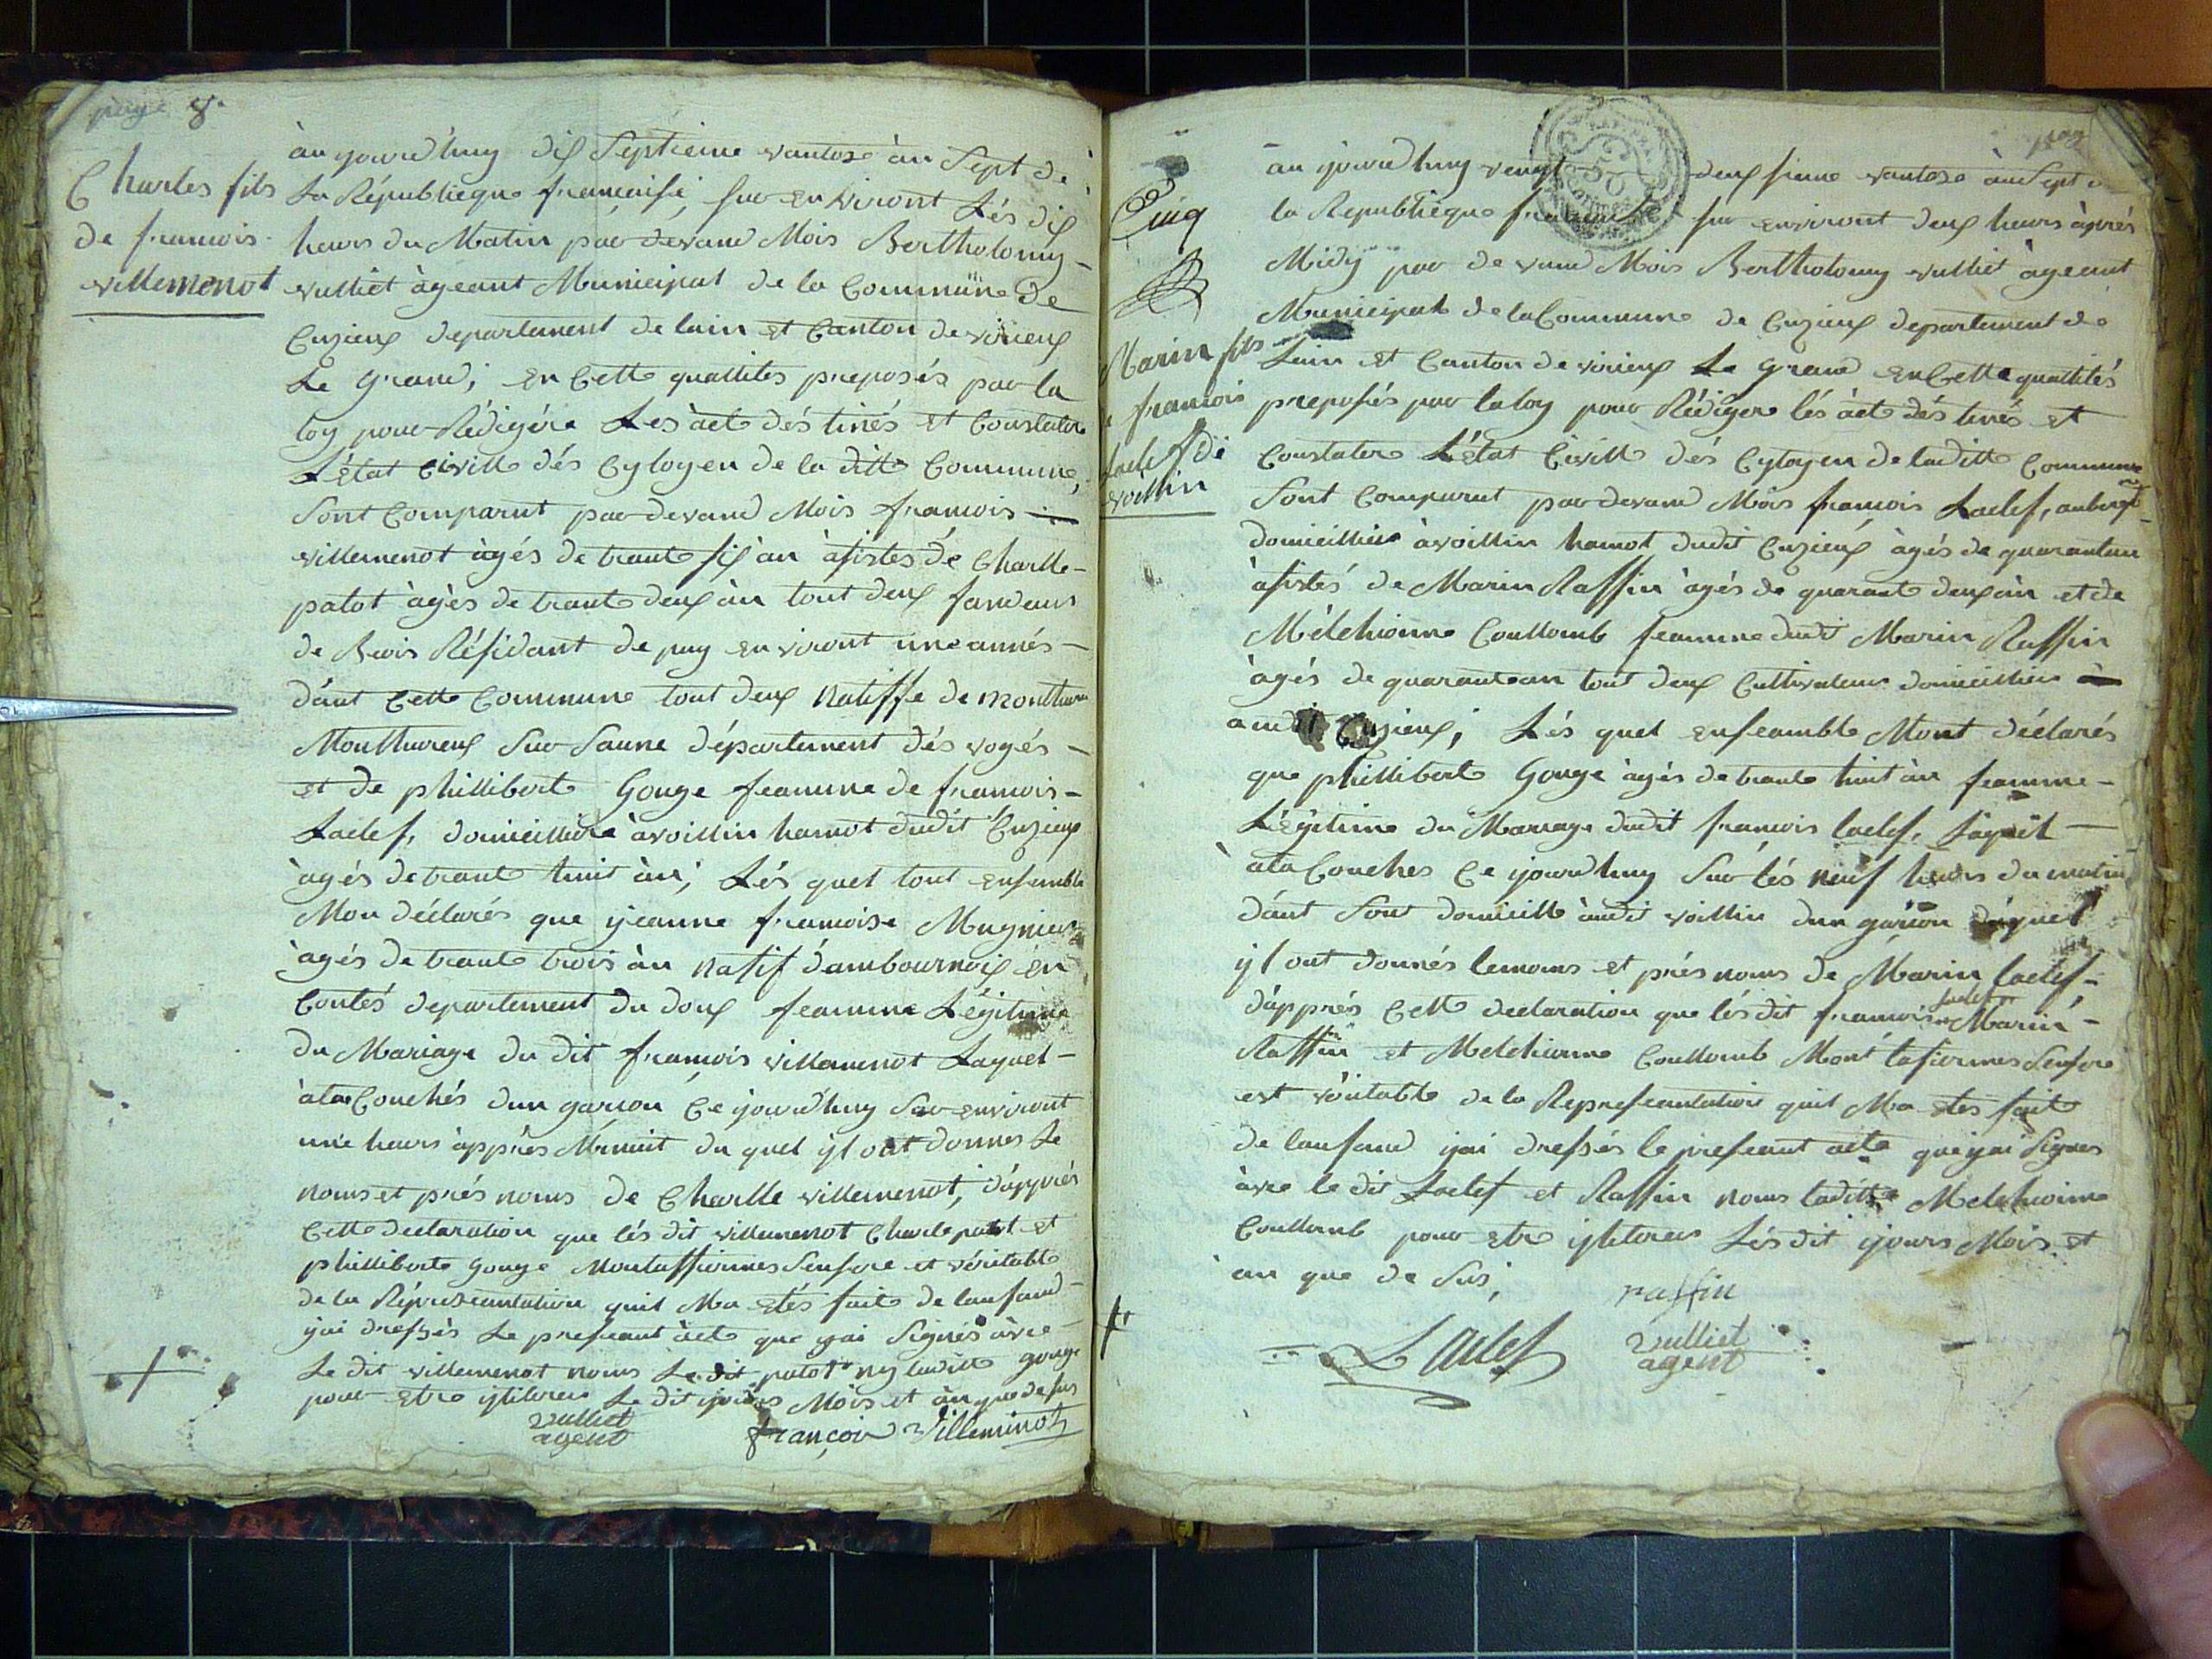 page 8.
Charles fils
de francois
villemenot
àu yourd'huy dix Septieme vantose àn Sept de
La Républiegue francaise, sur environt Lés dix
heurs du Matin par devand Mois Bertholomy
vulliet àgeant Municipal de la Commune de
Cuzieux departement de lain et Canton de virieux
Le Grand; en Cette quallites preposés par la
loy pour Rédigére Les àct déstinés et Constater
L'état Civill dés Cytoyen de la ditte Commune,
Sont Comparut par devand Mois francois
villemenot àgés de trante six àn àsistes de Charlle
patot àgés de trante deux àn tout deux fandeurs
de Bois Résidant de puy environt une annés
dant Cette Commune tout deux Natiffe de
Monthureux Sur Saune département dés vogés
et de phillibert Gouge feamme de francois
Laclef, domicilliére àvoillin hamot dudit Cuzieux
àgés de trante huit àn; Lés quel tout ensemble
Mon déclarés que yeanne francoise Mugnier
àgés de trante trois àn Natif d'ambournoix en
Contés departement du doux feamme Légitime
du Mariage du dit francois villemenot Laquel
àla Couchés dun garson Ce yourd'huy Sur environt
une heurs àpprés Menuit du quel yl ont donnes Le
noms et prés noms de Charlle villemenot, d'apprés
Cette declaration que lés dit villemenot Charle patot et
phillibert gouge Montaffirmes Senfere et véritable
de la Répreseantation quil Ma etés fait de lanfand
yai dressés Le preseant àct que yai Signés àvec
Le dit villemenot noms Le dit patot ny laditte gouge
pour etre yliterer Le dit yours Mois et àn que de sus
vulliet
agent
françois Villeminot
Cinq
Marin fils
francois
Laclef de
voillin
àu yourd huy vengt deuxsieme vantose àn Sept
la Republiegue sur environt deux heurs àprés
Midy par devand Mois Bertholomy vulliet àgeant
Municipal de la Commune de Cuzieux departement de
Lain et Canton de virieux Le Grand en Cette quallités
preposés par la loy pour Rédigere lés àct déstinés et
Constater L'état Civill dés Cytoyen de laditte Commune
Sont Comparut par devand Mois francois Laclef,
domicillier àvoillin hamot dudit Cuzieux àgés de quarantun
àsistés de Marin Raffin àgés de quarant deux àn et de
Mélchionne Coullomb feamme dudit Marin Raffin
àgés de quarant an tout deux Cultivateur domicillier
audit Cuzieux; Lés quel enseamble Mont déclarés
que phillibert Gouge àgés de trante huit àn feamme
Légitime du Mariage dudit francois laclef, Laquel
àla Couches Ce yourd huy Sur lés neuf heurs du matin
dant Sont domicille àudit voillin dun garson duquel
yl ont donnés le noms et prés noms de Marin laclef,
d'apprés Cette declaration que lés dit francois laclef Marin
Raffin et Melchionne Coullomb Mont lafirmes Senfere
est véritable de la Representation quil Ma etes fait
de lanfand yai dressés le preseant acte que yai Signes
àvec le dit Laclef et Raffin noms laditte Melchionne
Coullomb pour etre yliterer Lés dit yours Mois et
àn que de Sus,
raffin
Laclef
vulliet
agent